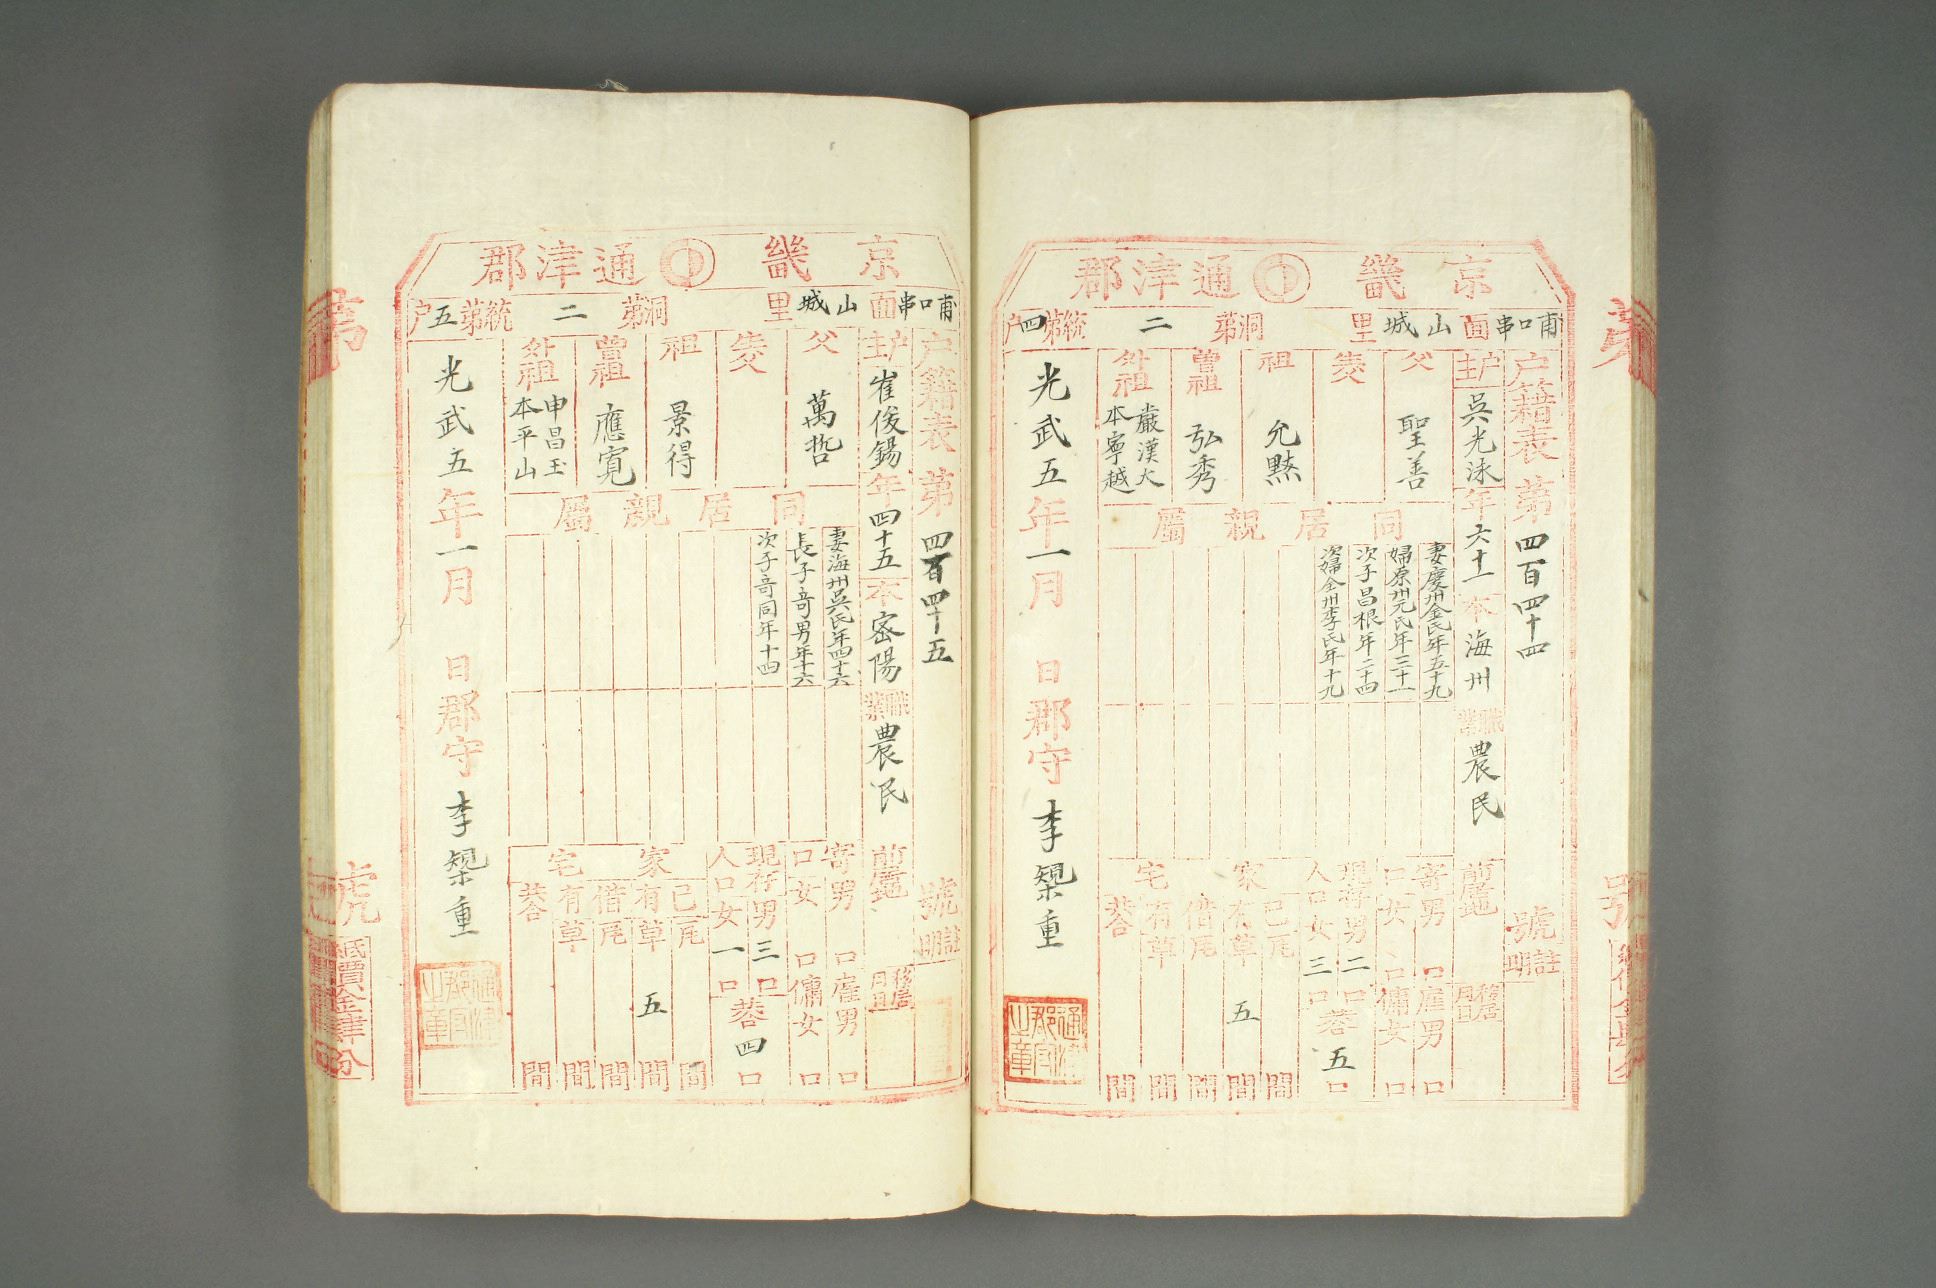 京畿 通津郡
甫口串面 山城里 洞第 二 統第 四 户
户籍表 第 四百四十四 號 註明
户主 吳光泳 年 六十一 本 海州 職業 農民 前居地 移居月日
父 聖善
生父
祖 允黙
曾祖 弘秀
外祖 嚴漢大 本寧越
同居親屬
妻慶州金氏年五十九
婦原州元氏年三十一
次子昌根年二十四
次婦全州李氏年十九
寄口 男 口 女 口 雇男 口 傭女 口
現存人口 男 二 口 女 三 口 共合 五 口
家宅 己有 瓦 間 草 五 間 借有 瓦 間 草 間 共合 間
光武五年一月 日 郡守 李㮨重
通津郡守之章
京畿 通津郡
甫口串面 山城里 洞第 二 統第 五 户
户籍表 第 四百四十五 號 註明
户主 崔俊錫 年 四十五 本 密陽 職業 農民 前居地 移居月日
父 萬哲
生父
祖 景得
曾祖 應寬
外祖 申昌玉 本平山
同居親屬
妻海州吳氏年四十六
長子奇男年十六
次子奇同年十四
寄口 男 口 女 口 雇男 口 傭女 口
現存人口 男 三 口 女 一 口 共合 四 口
家宅 己有 瓦 間 草 五 間 借有 瓦 間 草 間 共合 間
光武五年一月 日 郡守 李㮨重
通津郡守之章
號
紙價金肆分